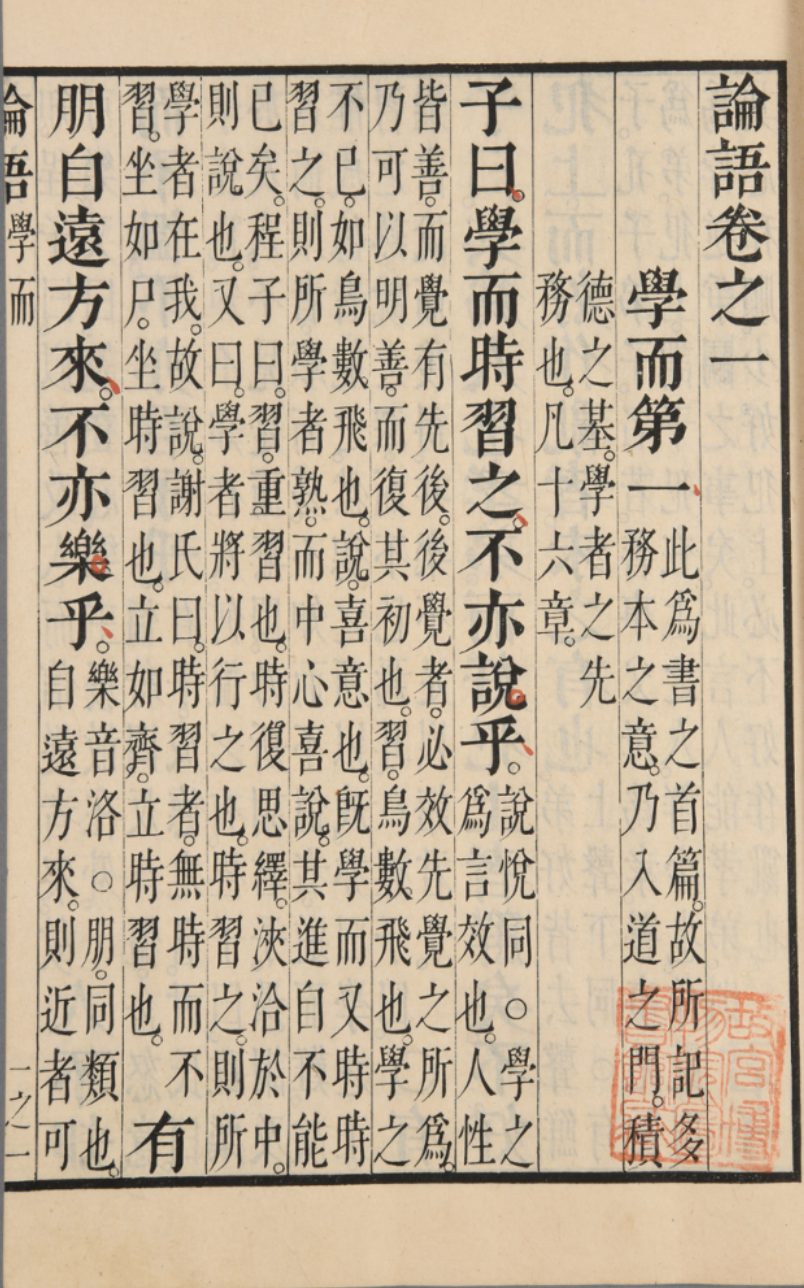 論語卷之一
學而第一
此爲書之首篇。故所記多
務本之意。乃入道之門。積
德之基。學者之先
務也。凡十六章。
子曰。學而時習之。不亦說乎。
說悅同○學之
爲言效也。人性
皆善。而覺有先後。後覺者。必效先覺之所爲。
乃可以明善。而復其初也。習。鳥數飛也。學之
不已。如鳥數飛也。說。喜意也。旣學而又時時
習之。則所學者熟。而中心喜說。其進自不能
已矣。程子曰。習。重習也。時復思繹。浹洽於中。
則說也。又曰。學者將以行之也。時習之。則所
學者在我。故說。謝氏曰。時習者。無時而不
習。坐如尸。坐時習也。立如齊。立時習也。
有
朋自遠方來。不亦樂乎。
樂音洛○朋。同類也。
自遠方來。則近者可
論語 學而 一之一